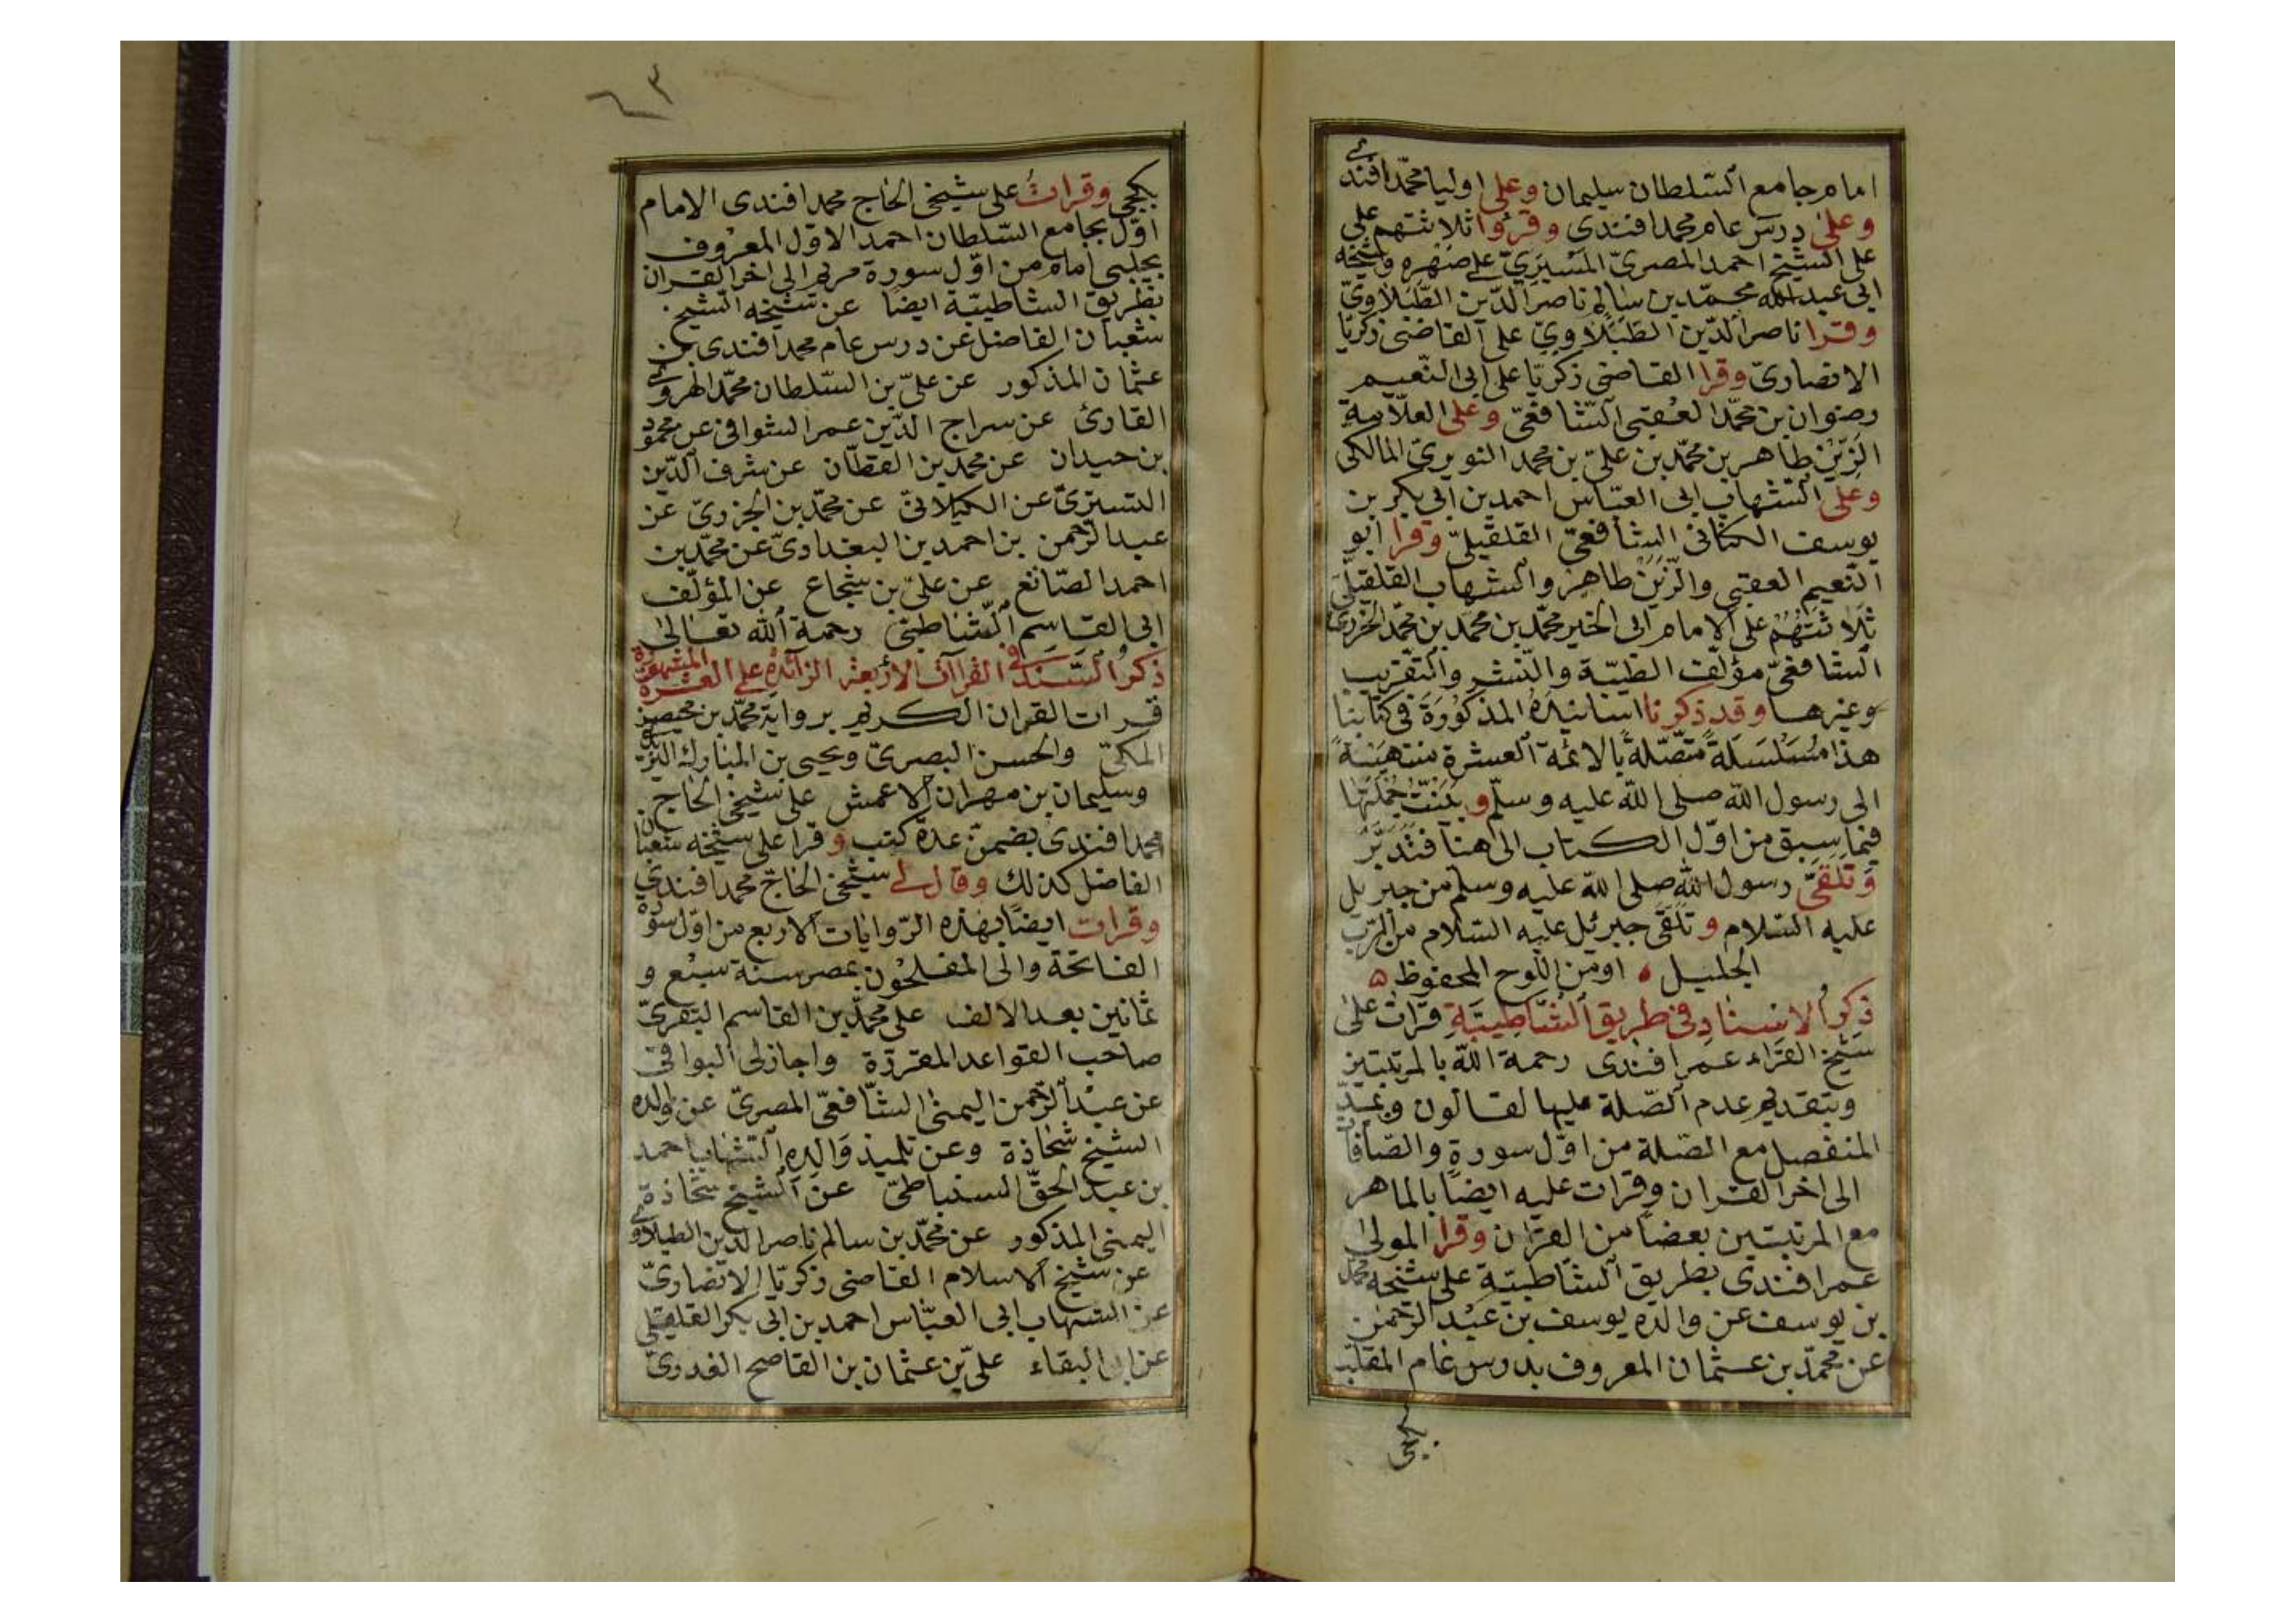 امام جامع السّلطان سليمان وعلى اوليا محمّد افندى
وعلى درس عام محمد افندى وقرؤا ثلاثتهم على
على الشيخ احمد المصرىّ المَسْيَرِيّ وشيخه
ابى عبد الله محمّد بن سالم ناصر الدّين الطَّبَلاوىّ
وقرا ناصر الدّين الطَّبَلاوىّ على القاضى زكريّا
الانصارىّ وقرا القاضى زكريّا على ابى النّعيم
رضوان بن محمّد العُقبى الشّافعّى وعلى العلّامة
الزّين طاهر بن محمّد بن علىّ بن محمد النويرىّ المالكى
وعلى الشّهاب ابى العبّاس احمد بن ابى بكر بن
يوسف الكنانى الشافعىّ القلقيلىّ وقرا ابو
النّعيم العقبى والزّين طاهر والشهاب القلقيلىّ
ثلاثتهم على الامام ابى الخير محمّد بن محمّد بن محمّد الجزرى
الشافعىّ مؤلّف الطيّبة والنّشر والتّقريب
وغيرها وقد ذكرنا اسانيده المذكورة فى كتابنا
هذا مُسَلسَلَةً متّصلةً بالائمة العشرة منتهيةً
الى رسول الله صلى الله عليه وسلّم و جملتها
فيما سبق من اوّل الكتاب الى هنا فتدبّر
وتلقّى رسول الله صلى الله عليه وسلم من جبريل
عليه السّلام وتلقّى جبرئل عليه السّلام من الرّب
الجليل ٥ اومن اللّوح المحفوظ ٥
ذكر الاسناد فى طريق الشّاطبيّة قرات على
شيخ القرّاء عمر افندى رحمة الله بالمرتبتين
وبتقديم عدم الصّلة عليها لقالون وبمدّ
المنفصل مع الصّلة من اوّل سورة والصّافّات
الى اخر القران وقرات عليه ايضًا بالماهر
مع المرتبتين بعضًا من القرآن وقرا المولى
عمر افندى بطريق الشّاطبيّة على شيخه محمد
بن يوسف عن والده يوسف بن عبد الرّحمن
عن محمّد بن عثمان المعروف بدرس عام الملقّب
بكجى
٦٣
بكجى وقراتُ على شيخى الحاج محمد افندى الامام
اوّل بجامع السّلطان احمد الاوّل المعروف
بچلبى امام من اوّل سورة مريم الى اخر القران
بطريق الشاطبيّة ايضًا عن شيخه الشيخ
شعبان الفاضل عن درس عام محمد افندى بن
عثمان المذكور عن علىّ بن السّلطان محمّد الهروى
القارئ عن سراج الدّين عمر الشوافى عن محمود
بن حيدان عن محمد بن القطّان عن شرف الدّين
التسترىّ عن الكيلانىّ عن محمّد بن الجزرىّ عن
عبد الرّحمن بن احمد بن البغدادىّ عن محمّد بن
احمد الصّائغ عن علىّ بن شجاع عن المؤلّف
ابى القاسم الشّاطبىّ رحمة الله تعالى
ذكر السّند فى القراآت الأربعة الزائدة على العشرة المشهورة
قرات القران الكريم برواية محمّد بن محيصن
المكىّ والحسن البصرىّ ويحيى بن المبارك اليزيدى
وسليمان بن مهران الاعمش على شيخى الحاج
محمد افندى بضمن عدة كتب وقرا على شيخه شعبان
الفاضل كذلك وقال لى شيخى الحاجّ محمد افندى
وقرات ايضًا بهذه الرّوايات الاربع من اوّل سورة
الفاتحة والى المفلحون بمصر سنة سبع و
ثمانين بعد الالف على محمّد بن القاسم البقرىّ
صاحب القواعد المقرّرة واجازلى البواقى
عن عبد الرّحمن اليمنى الشّافعىّ المصرىّ عن والده
الشيخ شحاذة وعن تلميذ والده الشّهاب احمد
بن عبد الحقّ السنباطىّ عن الشّيخ شحاذة
اليمنى المذكور عن محمّد بن سالم ناصر الدّين الطبلاوى
عن شيخ الاسلام القاضى زكريّا الانصارىّ
عن الشهاب ابى العبّاس احمد بن ابى بكر القلقيلى
عن ابى البقاء علىّ بن عثمان بن القاصح العذرىّ